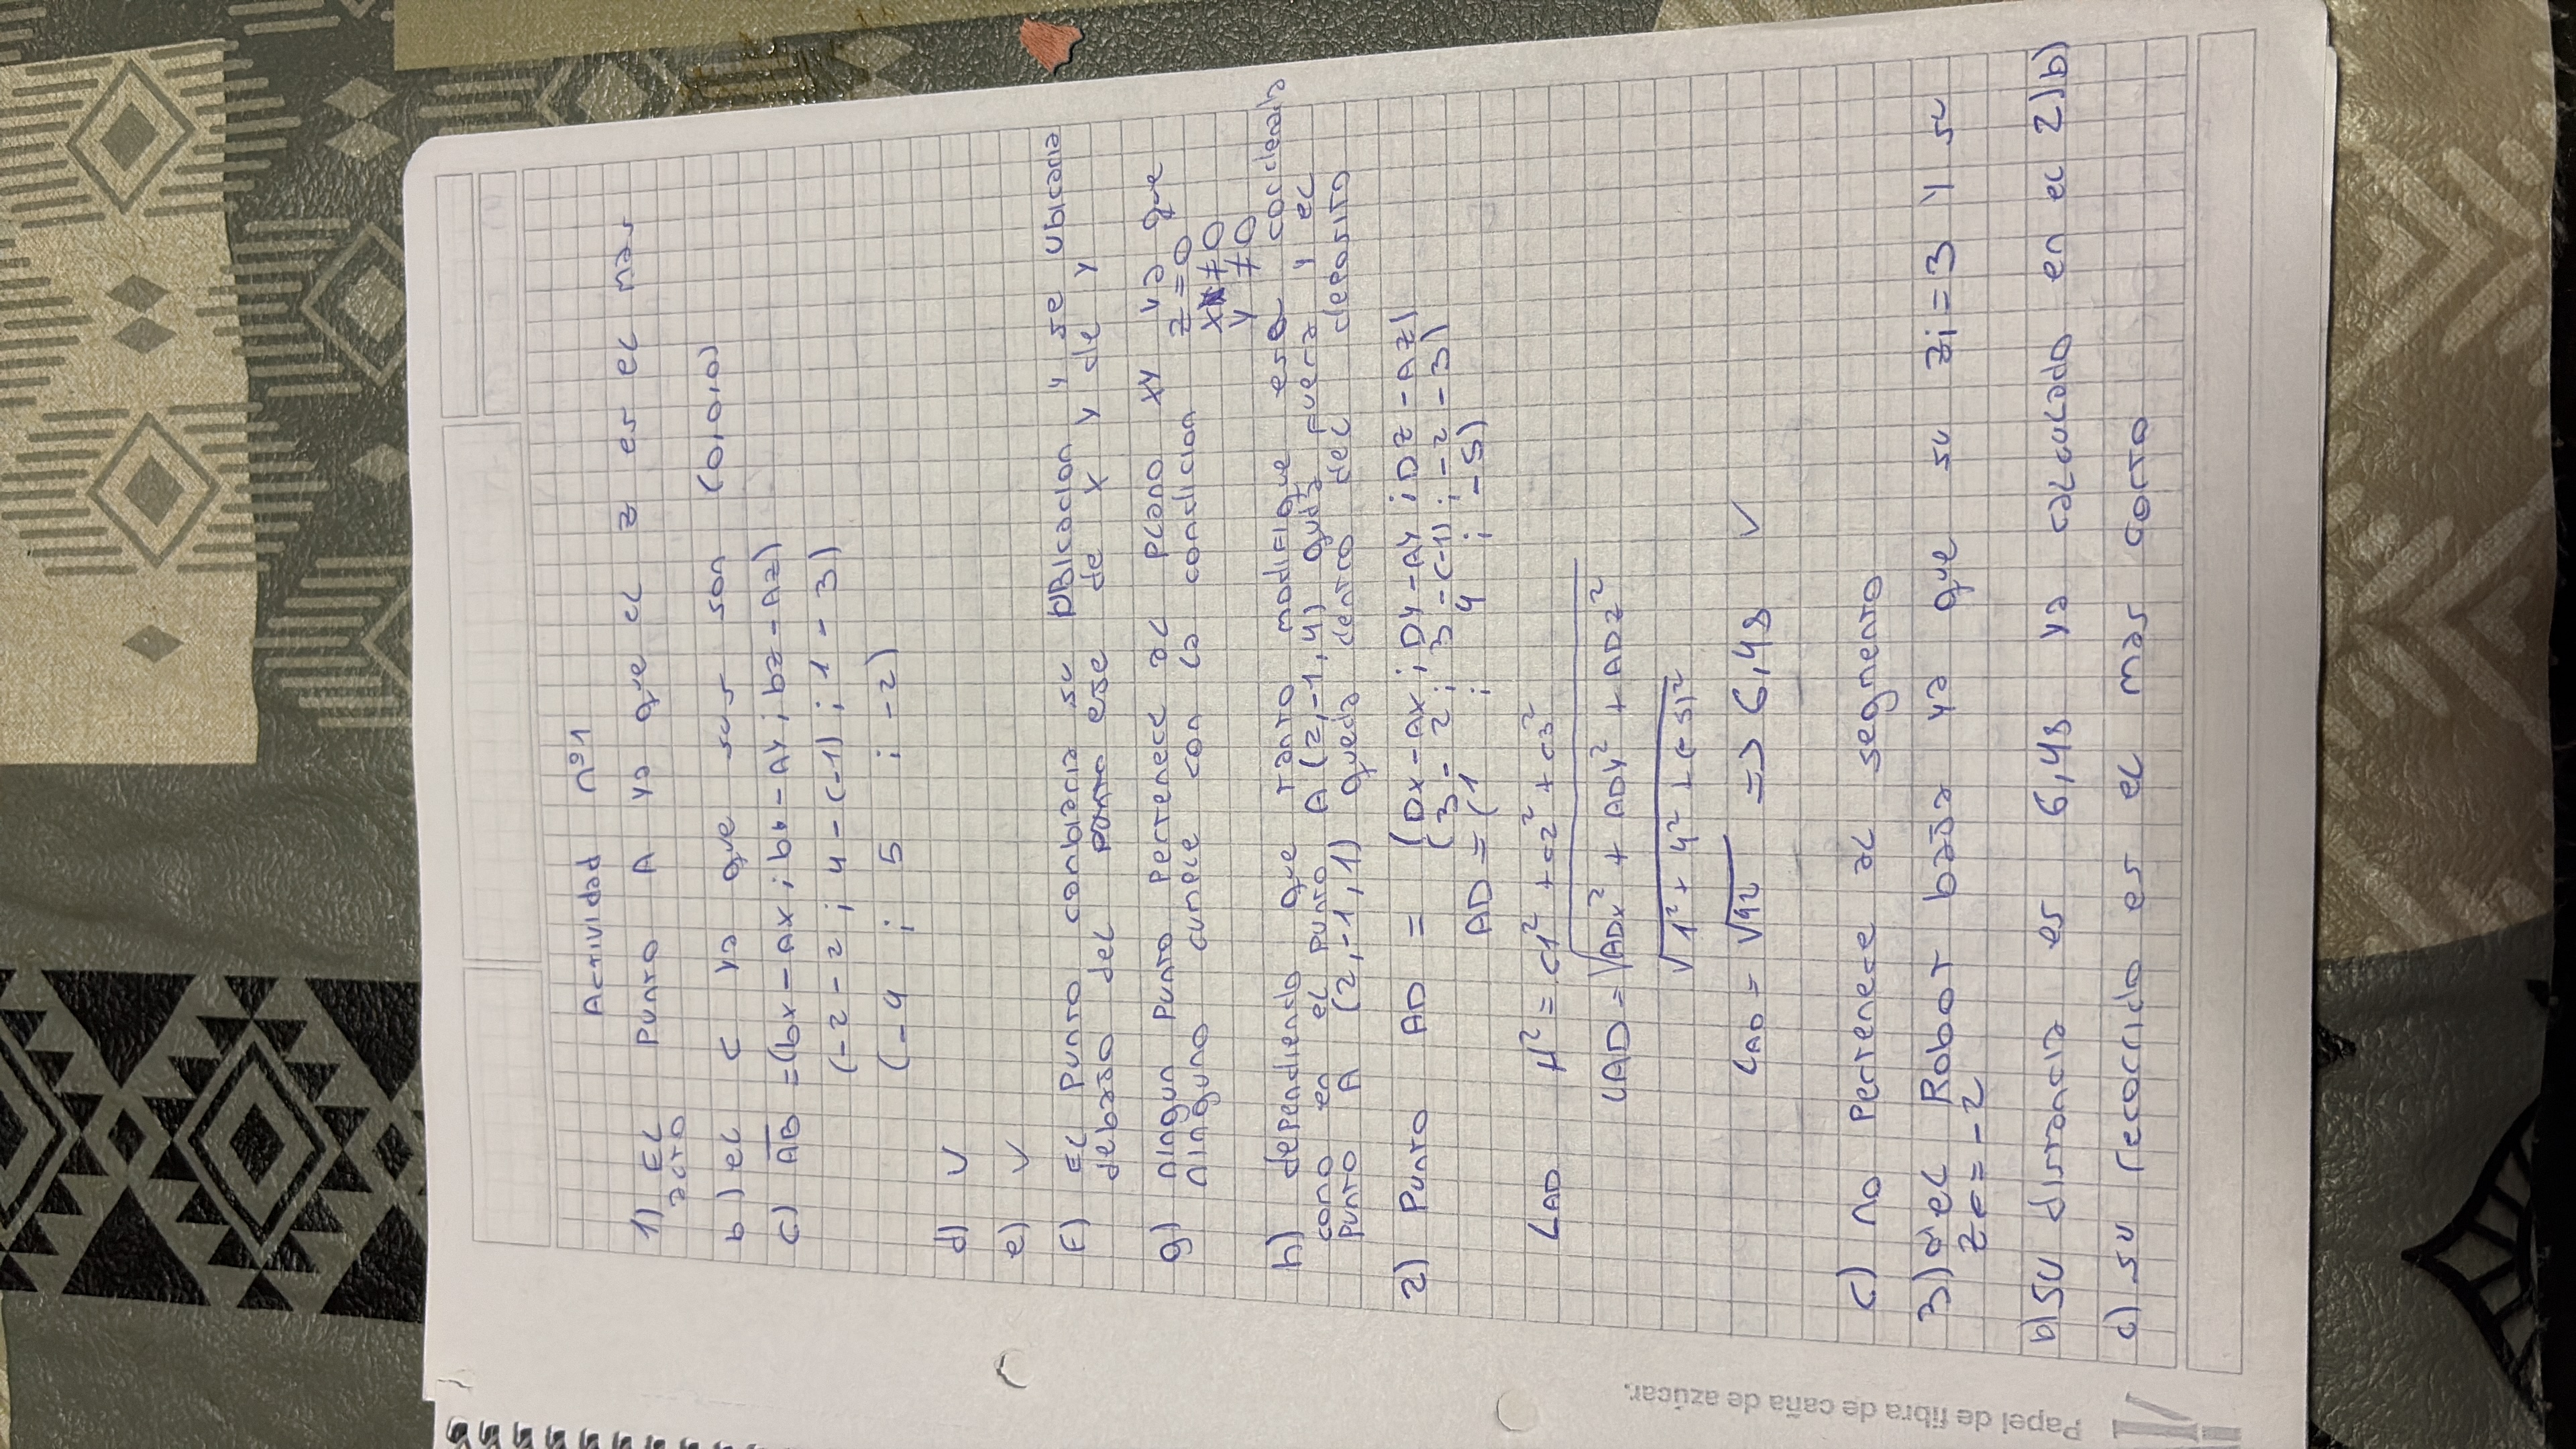 Actividad nº1
1) EL punto A ya que el z es el mas
alto
b) el C ya que sus son (0,0,0)
c) AB = (bx - Ax ; by - Ay ; bz - Az)
(-2 - 2 ; 4 - (-1) ; 1 - 3)
(-4 ; 5 ; -2)
d) V
e) V
F) EL punto canbiaria su ubicacion y se ubicaria
debajo del punto ese de x y de y
g) ningun punto pertenece al plano xy ya que
ninguno cumple con la condicion z=0
x≠0
y≠0
h) dependiendo que tanto modifique ese cordenada
como en el punto A(2,-1,4) queda fuera y el
punto A (2,-1,1) queda dentro del deposito
2) Punto AD = (Dx - Ax ; Dy - Ay ; Dz - Az)
(3 - 2 ; 3 - (-1) ; -2 - 3)
AD = (1 ; 4 ; -5)
LAD H² = c1² + c2² + c3²
LAD = √ADx² + ADy² + ADz²
√1² + 4² + (-5)²
LAD = √42 => 6,48 V
c) no pertenece al segmento
3) a el Robot baja ya que su zi = 3 y su
ze = -2
b) su distancia es 6,48 ya calculado en el 2)b)
c) su recorrido es el mas corto
Papel de fibra de caña de azúcar.